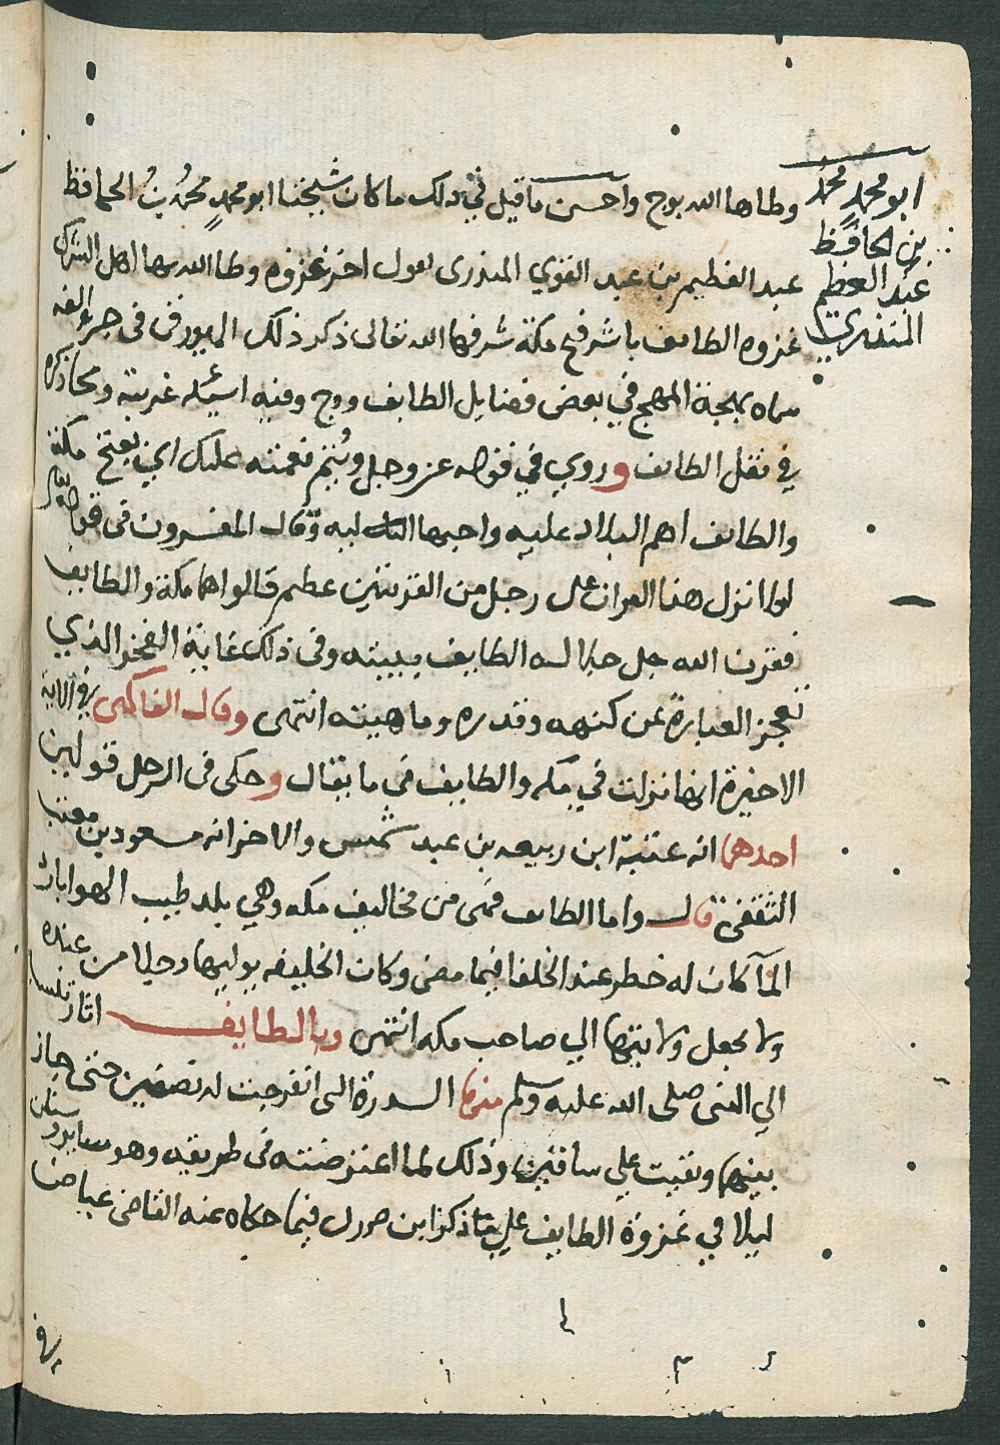 وطاها الله بوج واحسن ما قيل في ذلك ما كان شيخنا ابو محمد محمد بن الحافظ
عبد العظيم بن عبد القوي المنذرى يقول اخر غزوه وطا الله بها اهل الشرك
غزوه الطايف باثر فتح مكة شرفها الله تعالى ذكر ذلك الميورقى في جزء الفه
سماه بهجة المهج في بعض فضايل الطايف ووج وفيه اسئله غريبة ومما ذكره
في نقل الطايف وروي في قوله عز وجل ويتم نعمته عليك اي بفتح مكة
والطايف اهم البلاد عليه واحبها اليه وقال المفسرون في قوله تعالى
لولا نزل هذا القران على رجل من القريتين عظيم قالوا هما مكة والطايف
فقرن الله جل جلاله الطايف ببيته وفى ذلك غاية الفخر الذي
تعجز العبارة عن كنهه وقدره وماهيته انتهى وقال الفاكهى في الاية
الاخيرة انها نزلت في مكه والطايف في ما يقال وحكى فى الرجل قولين
احدهما انه عتبة ابن ربيعه بن عبد شمس والاخر انه مسعود بن معتب
الثقفى قال واما الطايف فهى من مخاليف مكه وهي بلد طيب الهوا بارد
المآ كان له خطر عند الخلفا فيما مضى وكان الخليفه يوليها رجلا من عنده
ولا يجعل ولايتها الي صاحب مكه انتهى وبالطايف اثار تنسب
الي النبى صلى الله عليه وسلم منها السدرة التى انفرجت له نصفين حتى جاز
بينهما وبقيت علي ساقين وذلك لما اعترضته في طريقه وهو ساير وسنان
ليلا في غزوة الطايف علي ما ذكر ابن فورك فيما حكاه عنه القاضى عياض
ابو محمد محمد
بن الحافظ
عبد العظيم
المنذري